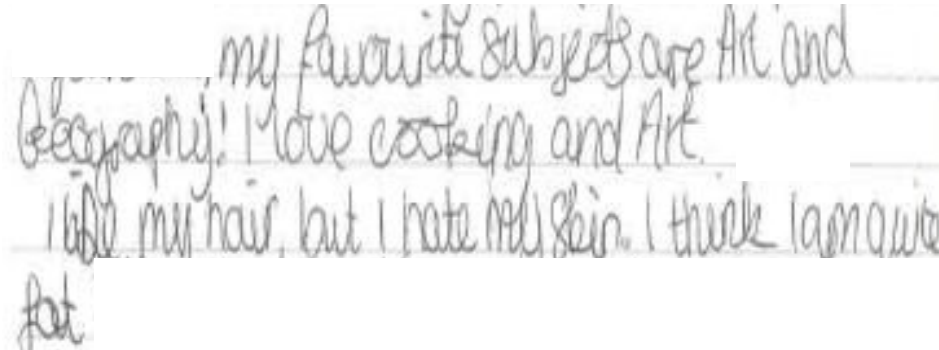 my favourite subjects are Art and
Geography! I love cooking and Art.
I like my hair, but I hate my skin. I think I am quite
fat